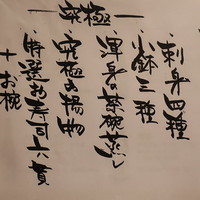 究極
・刺身四種
・小鉢三種
・渾身の茶碗蒸し
・究極の揚物
・特選お寿司六貫
＋お椀